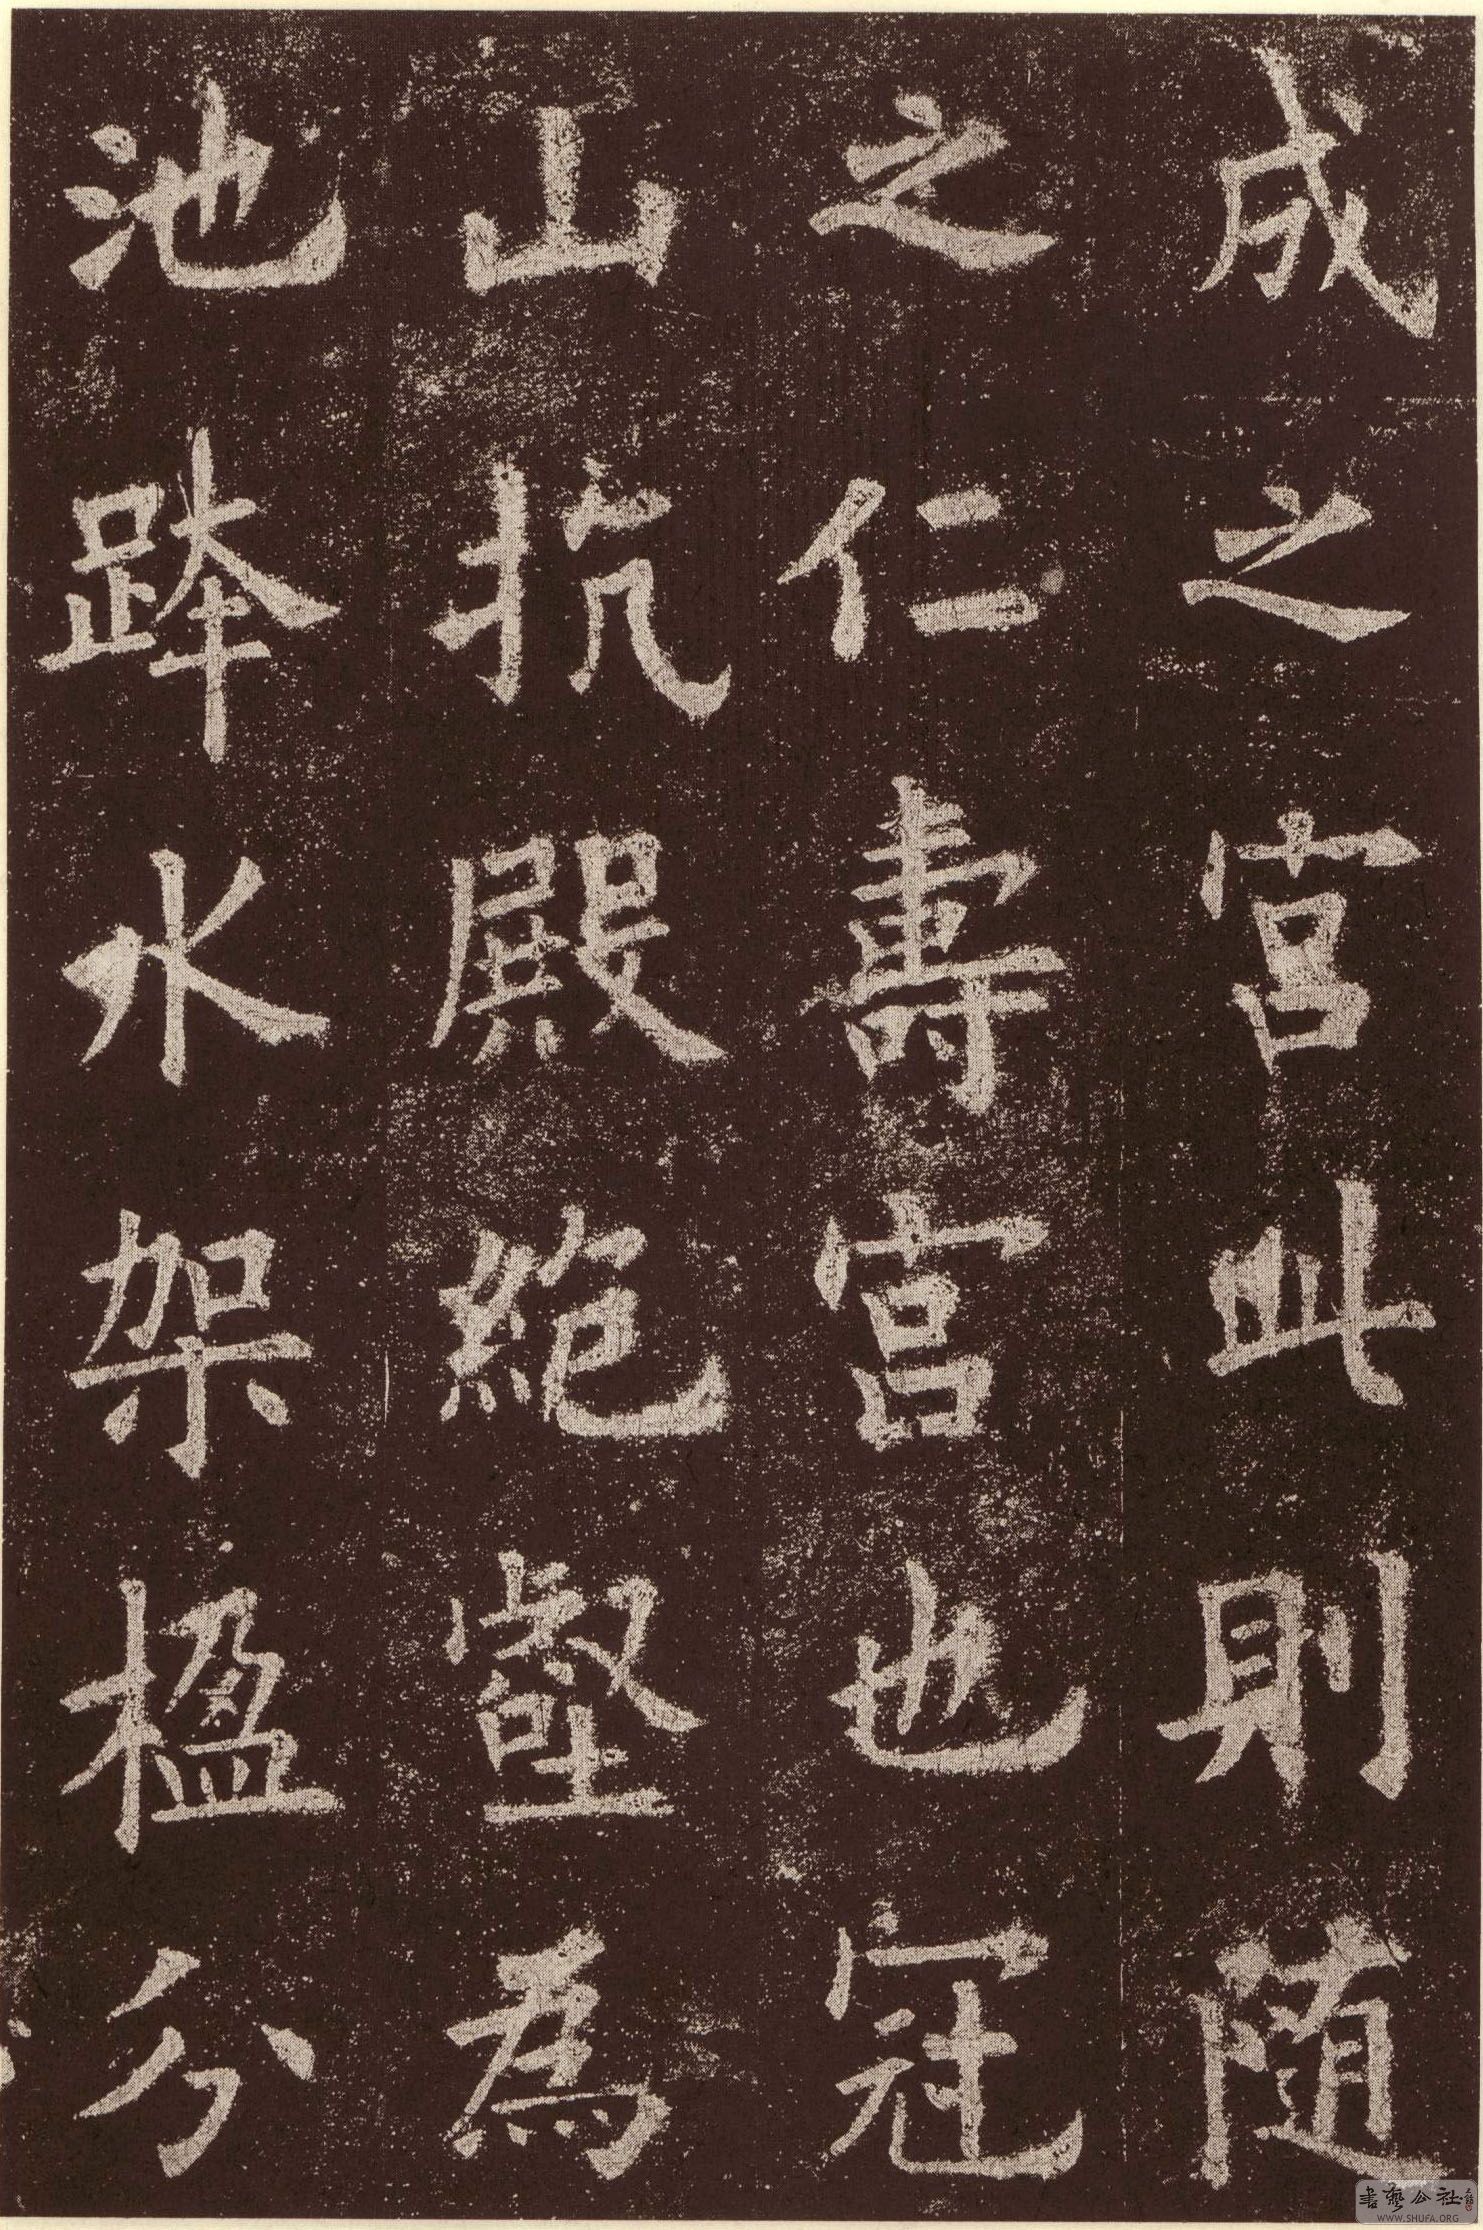 成之宮此則隨
之仁壽宮也冠
山抗殿絕壑為
池跨水架楹分
書藝公社
WWW.SHUFA.ORG